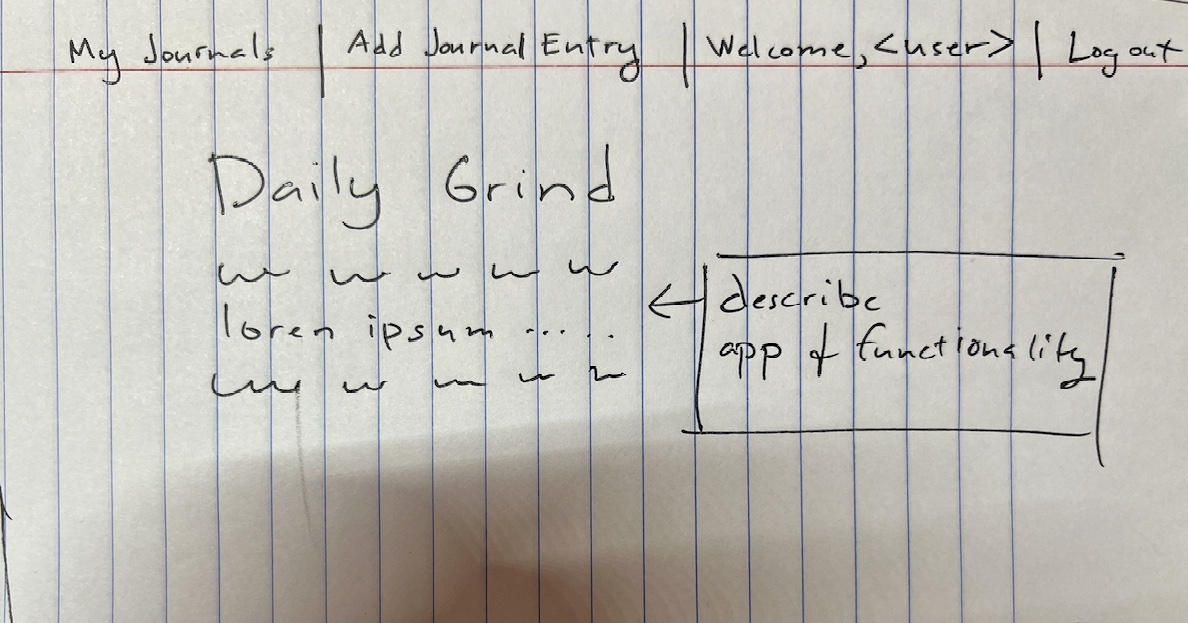 My Journals | Add Journal Entry | Welcome, <user> | Log out
Daily Grind
loren ipsum .....
describe
app & functionality